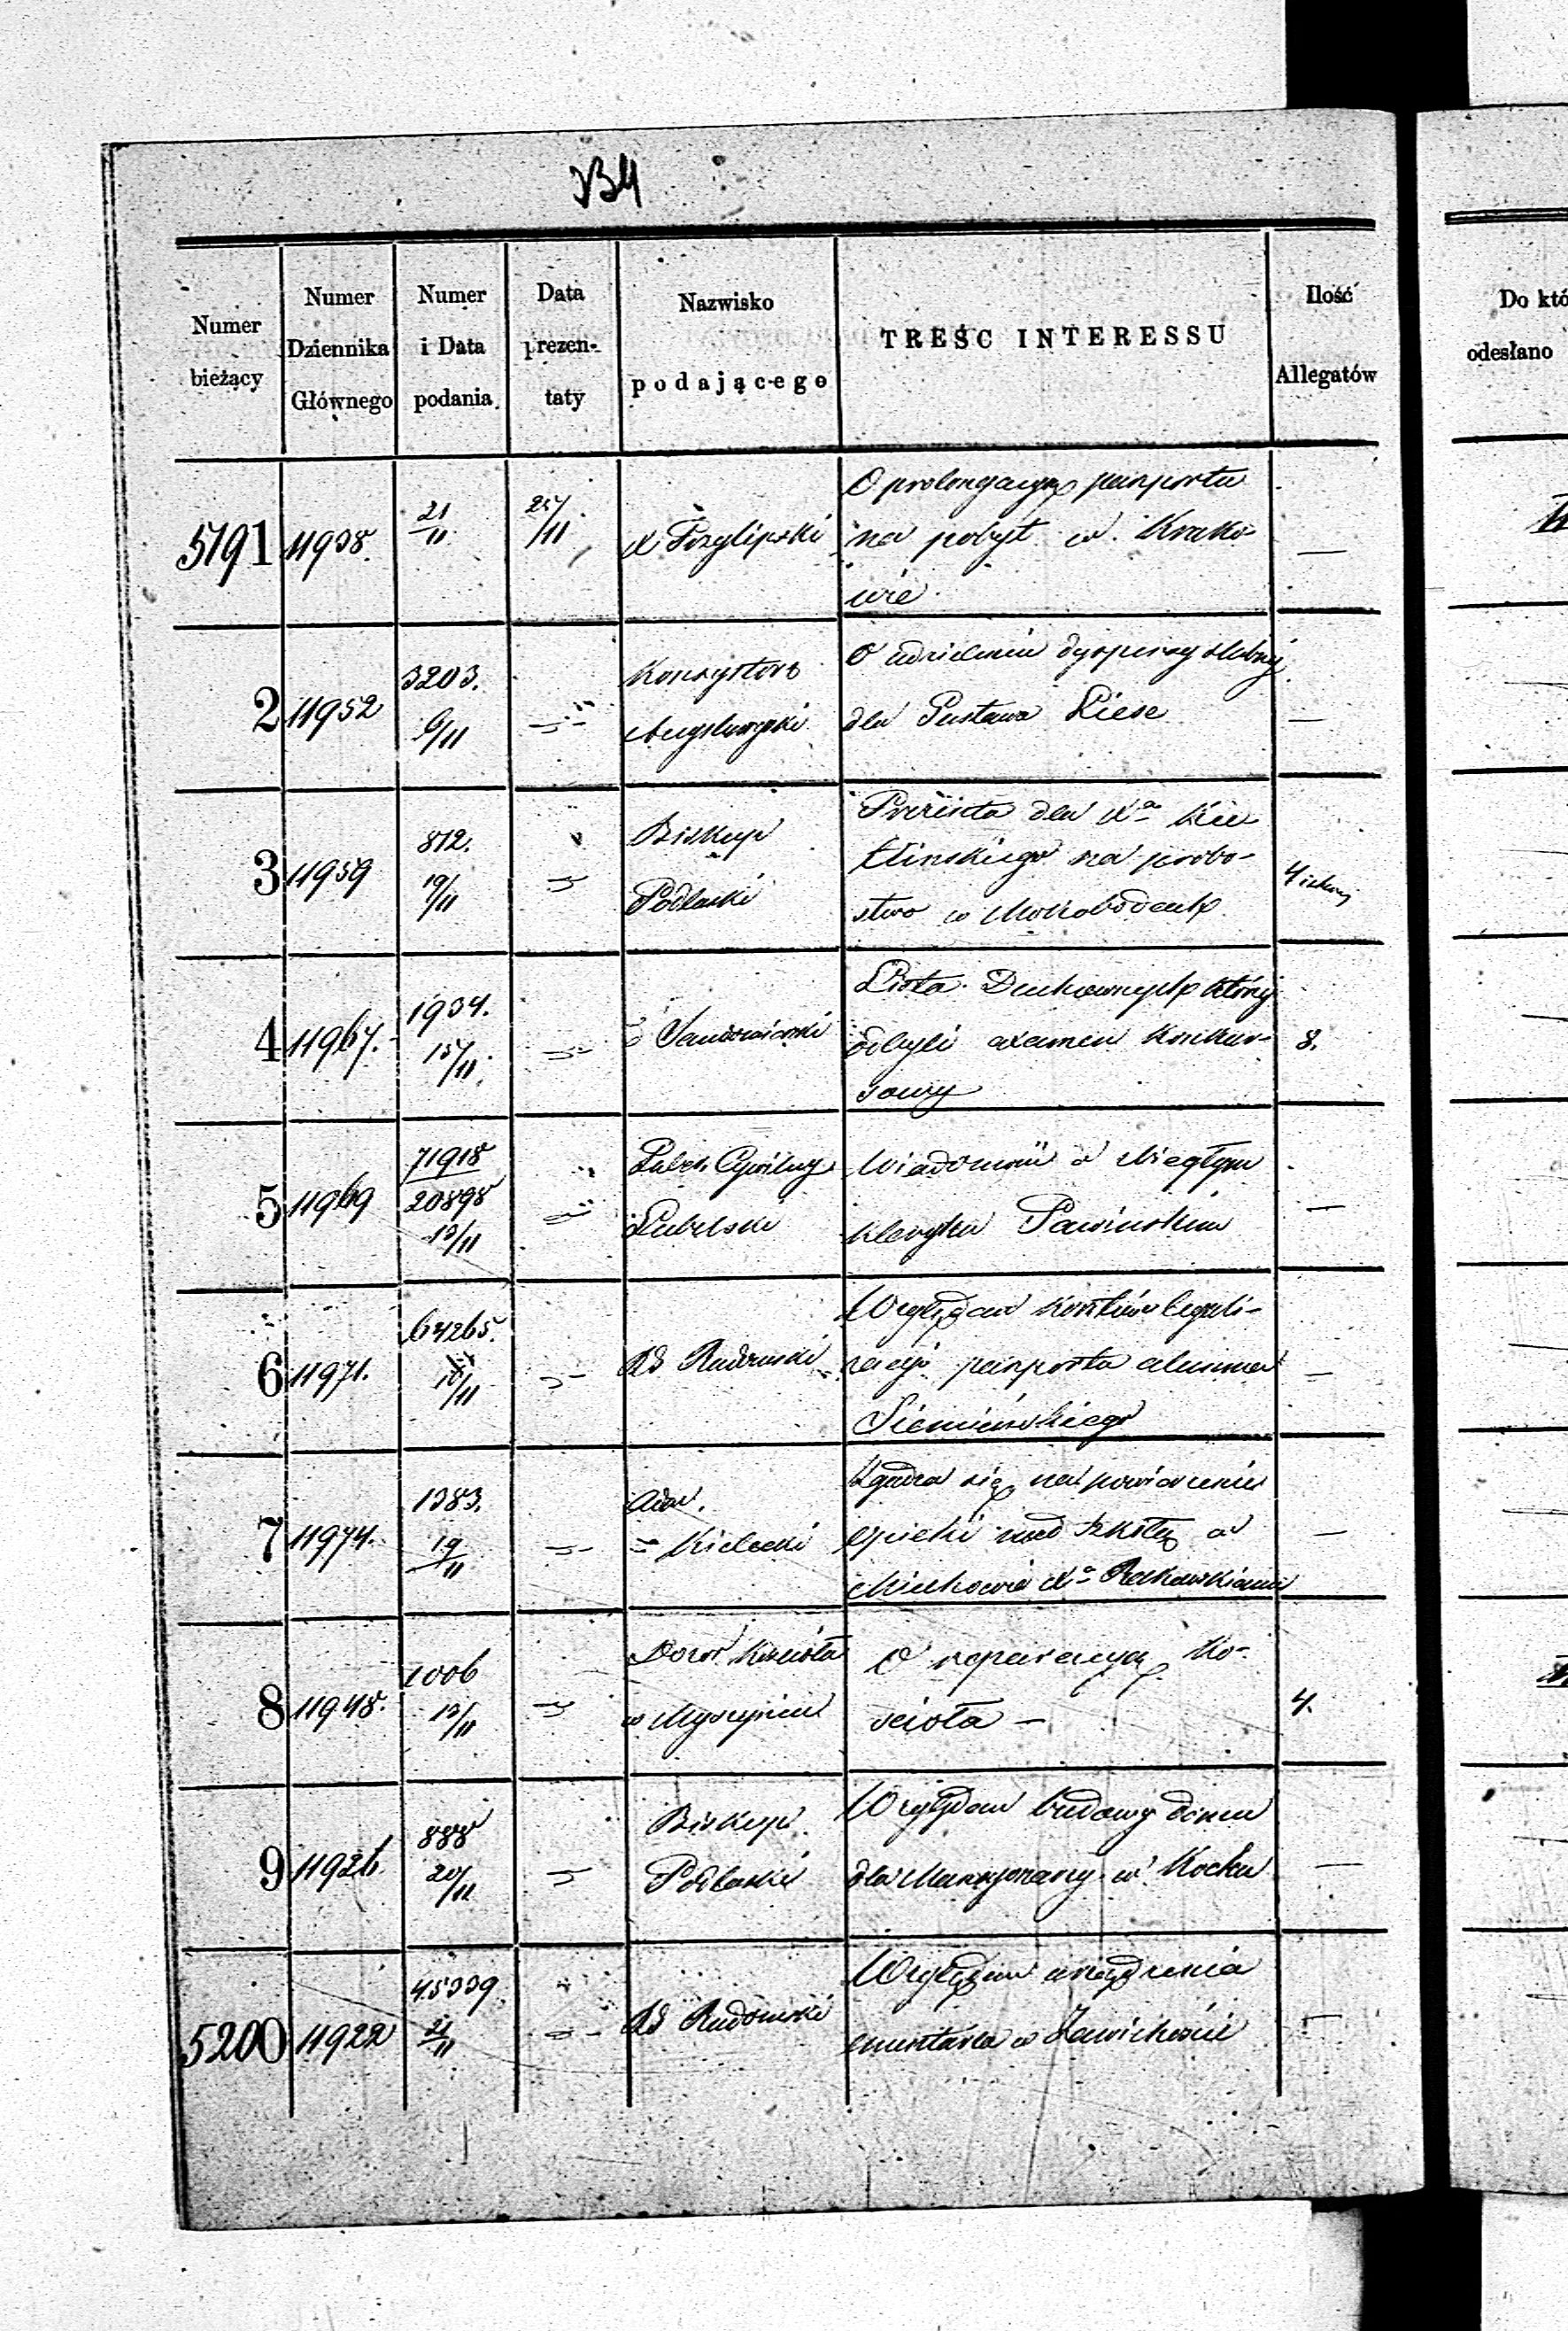 Numer bieżący | Numer Dziennika Głównego | Numer i Data podania | Data prezentaty | Nazwisko podającego | TREŚC INTERESSU | Ilość Allegatów
Do któ
odesłano
5191 | 11938. | 21/11 | 25/11 | X Przylipski | O prolongacyą pasportu
na pobyt w Krako-
wie | —
2 | 11952 | 3203. 6/11 | Konsystorz
Augustowski | O udzielenie dyspensy ślubnej
dla Gustawa Liese | —
3 | 11959 | 812. 19/11 | Biskup
Podlaski | Prezenta dla Xa
na probo-
stwo w Mokobodach | 4
4 | 11967. | 1934. 15/11 | Sandomierski | Lista Duchownych którzy
odbyli examen konkur-
sowy | 8.
5 | 11969 | 71918/20898 13/11 | Guber. Cywilny
Lubelski | Wiadomość o zbiegłym
kleryku Pawińskim | —
6 | 11971. | 64265. 16/11 | Rd Radomski | Względem kosztów legali-
zacyi pasportu alumna
Siemieńskiego | —
7 | 11974. | 1383. 19/11 | Adm.
Kielecki | Zgadza się na powierzenie
opieki nad szkołą w
Miechowie Xa Rakowskiemu | —
8 | 11948. | 1006 12/11 | Dozór Kościoła
w Myszyńcu | O reparacyą Ko-
ścioła — | 4.
9 | 11926. | 888 20/11 | Biskup
Podlaski | Względem budowy domu
dla Mansyonarzy w Kocku | —
5200 | 11922 | 45339 21/11 | Rd Radomski | Względem urządzenia
cmentarza w Zawichoście | —